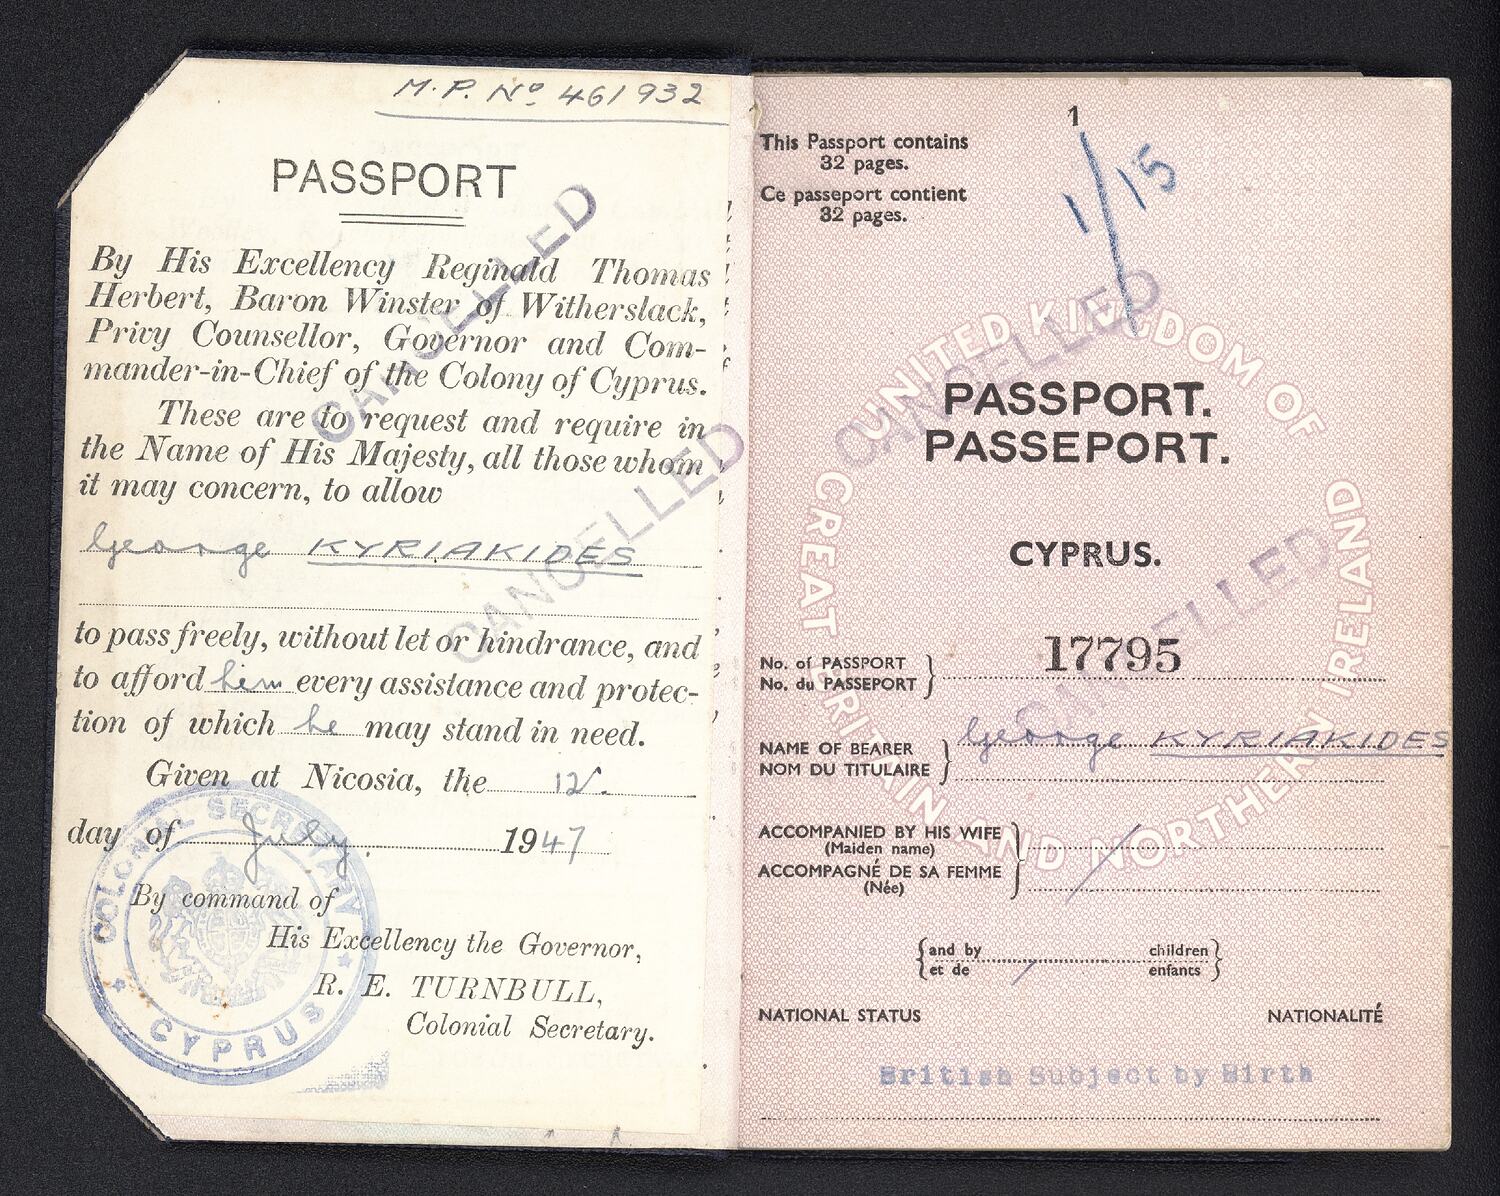 M.P. No 461932
PASSPORT
By His Excellency Reginald Thomas
Herbert, Baron Winster of Witherslack,
Privy Counsellor, Governor and Com-
mander-in-Chief of the Colony of Cyprus.
These are to request and require in
the Name of His Majesty, all those whom
it may concern, to allow
George KYRIAKIDES
to pass freely, without let or hindrance, and
to afford him every assistance and protec-
tion of which he may stand in need.
Given at Nicosia, the 12.
day of July. 1947
By command of
His Excellency the Governor,
R. E. TURNBULL,
Colonial Secretary.
COLONIAL SECRETARY
CYPRUS
CANCELLED
CANCELLED
1
1/15
This Passport contains
32 pages.
Ce passeport contient
32 pages.
UNITED KINGDOM OF
GREAT BRITAIN AND NORTHERN IRELAND
PASSPORT.
PASSEPORT.
CYPRUS.
No. of PASSPORT
No. du PASSEPORT
17795
NAME OF BEARER
NOM DU TITULAIRE
George KYRIAKIDES
ACCOMPANIED BY HIS WIFE
(Maiden name)
ACCOMPAGNÉ DE SA FEMME
(Née)
and by children
et de enfants
NATIONAL STATUS NATIONALITÉ
British Subject by Birth
CANCELLED
CANCELLED